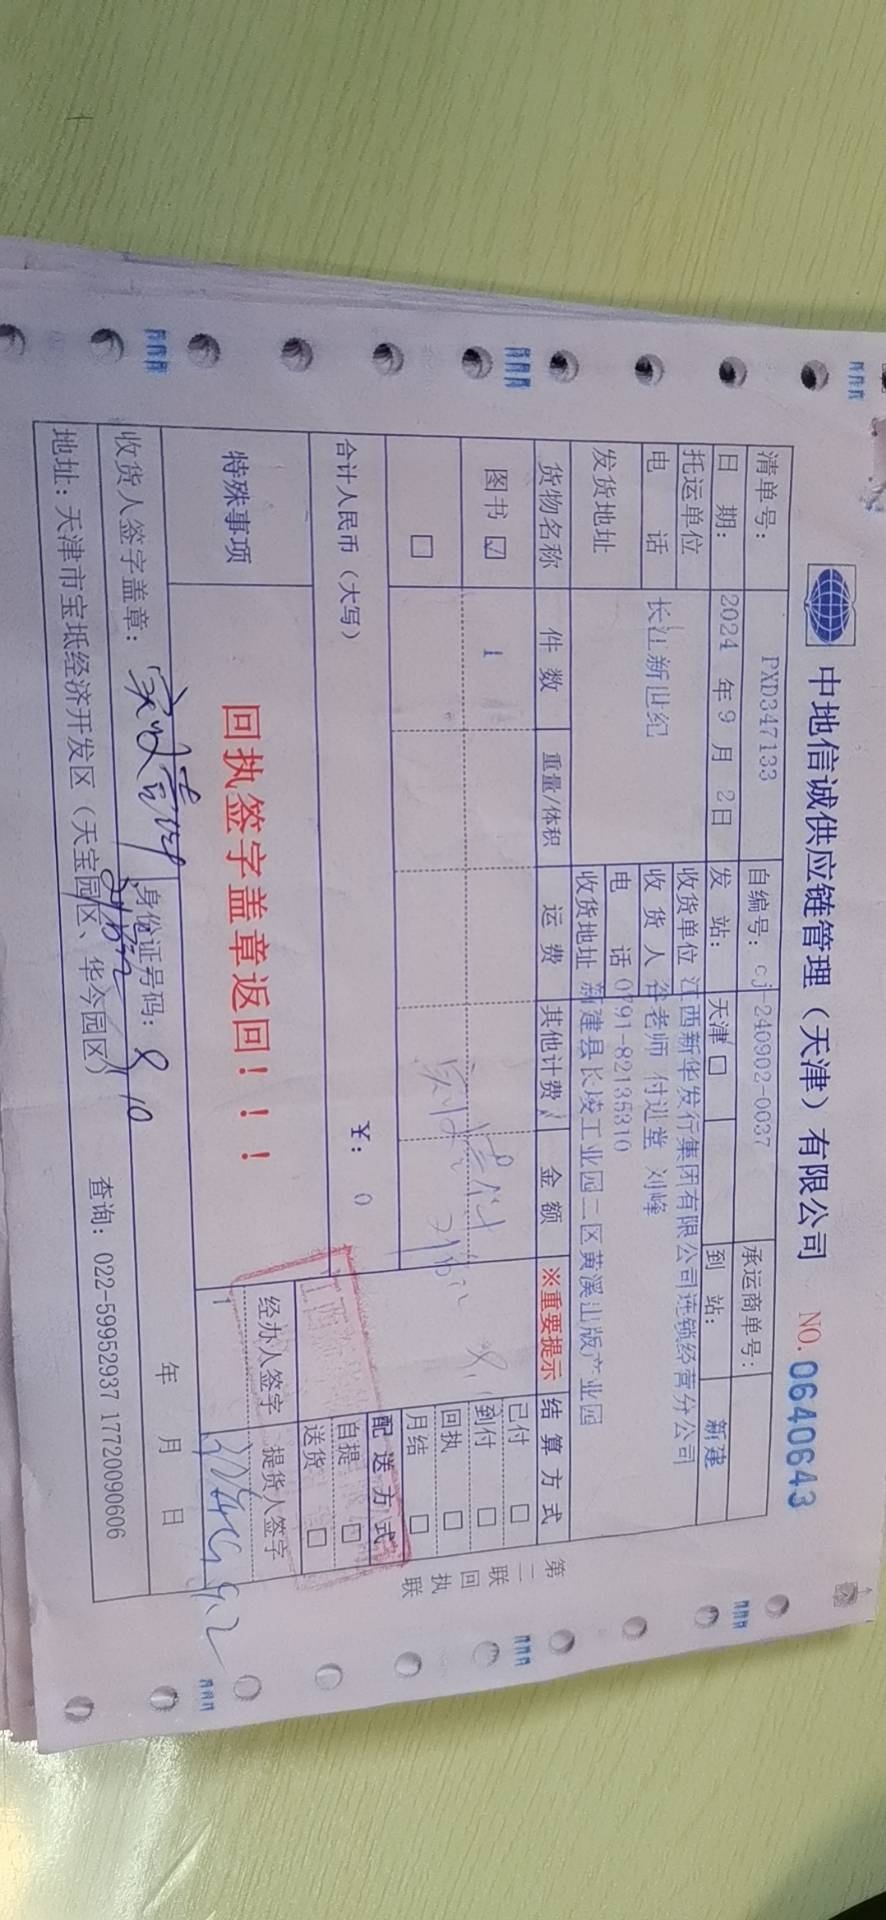 中地信诚供应链管理（天津）有限公司 NO. 0640643
清单号： PXD347133 自编号： cj-240902-0037 承运商单号：
日 期： 2024 年 9 月 2日 发 站： 天津 □ 到 站： 新建
托运单位 长江新世纪 收货单位 江西新华发行集团有限公司连锁经营分公司
电 话 收 货 人 谷老师 付进堂 刘峰
电 话 0791-82135310
发货地址 收货地址 新建县长堎工业园二区黄溪出版产业园
货物名称 件 数 重量/体积 运 费 其他计费 金 额 ※重要提示 结 算 方 式
图书 ☑ 1 已付 □
到付 □
□ 回执 □
月结 □
合计人民币（大写） ￥： 0 配 送 方 式
自提 □
送货 □
特殊事项 回执签字盖章返回！！！ 经办人签字 提货人签字
1 9.2
收货人签字盖章： 身份证号码： 9.10 年 月 日
地址：天津市宝坻经济开发区（天宝园区、华今园区） 查询：022-59952937 17720090606
第二联 回执联
江西